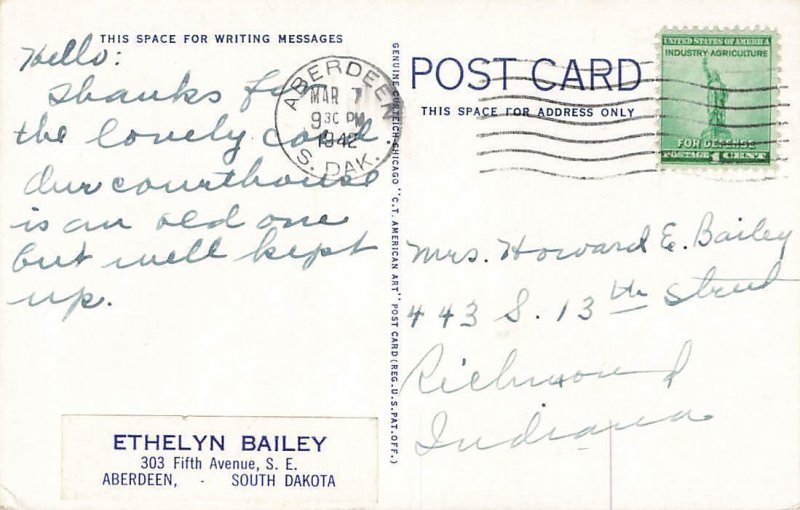 THIS SPACE FOR WRITING MESSAGES
Hello:
Thanks for
the lovely card.
Our courthouse
is an old one
but well kept
up.
ETHELYN BAILEY
303 Fifth Avenue, S. E.
ABERDEEN, - SOUTH DAKOTA
ABERDEEN
MAR 7
9 30 PM
1942
S. DAK.
GENUINE CURTEICH-CHICAGO "C.T. AMERICAN ART" POST CARD (REG. U.S. PAT. OFF.)
POST CARD
THIS SPACE FOR ADDRESS ONLY
UNITED STATES OF AMERICA
INDUSTRY-AGRICULTURE
FOR DEFENSE
POSTAGE 1 CENT
Mrs. Howard E. Bailey
443 S. 13th Street
Richmond
Indiana